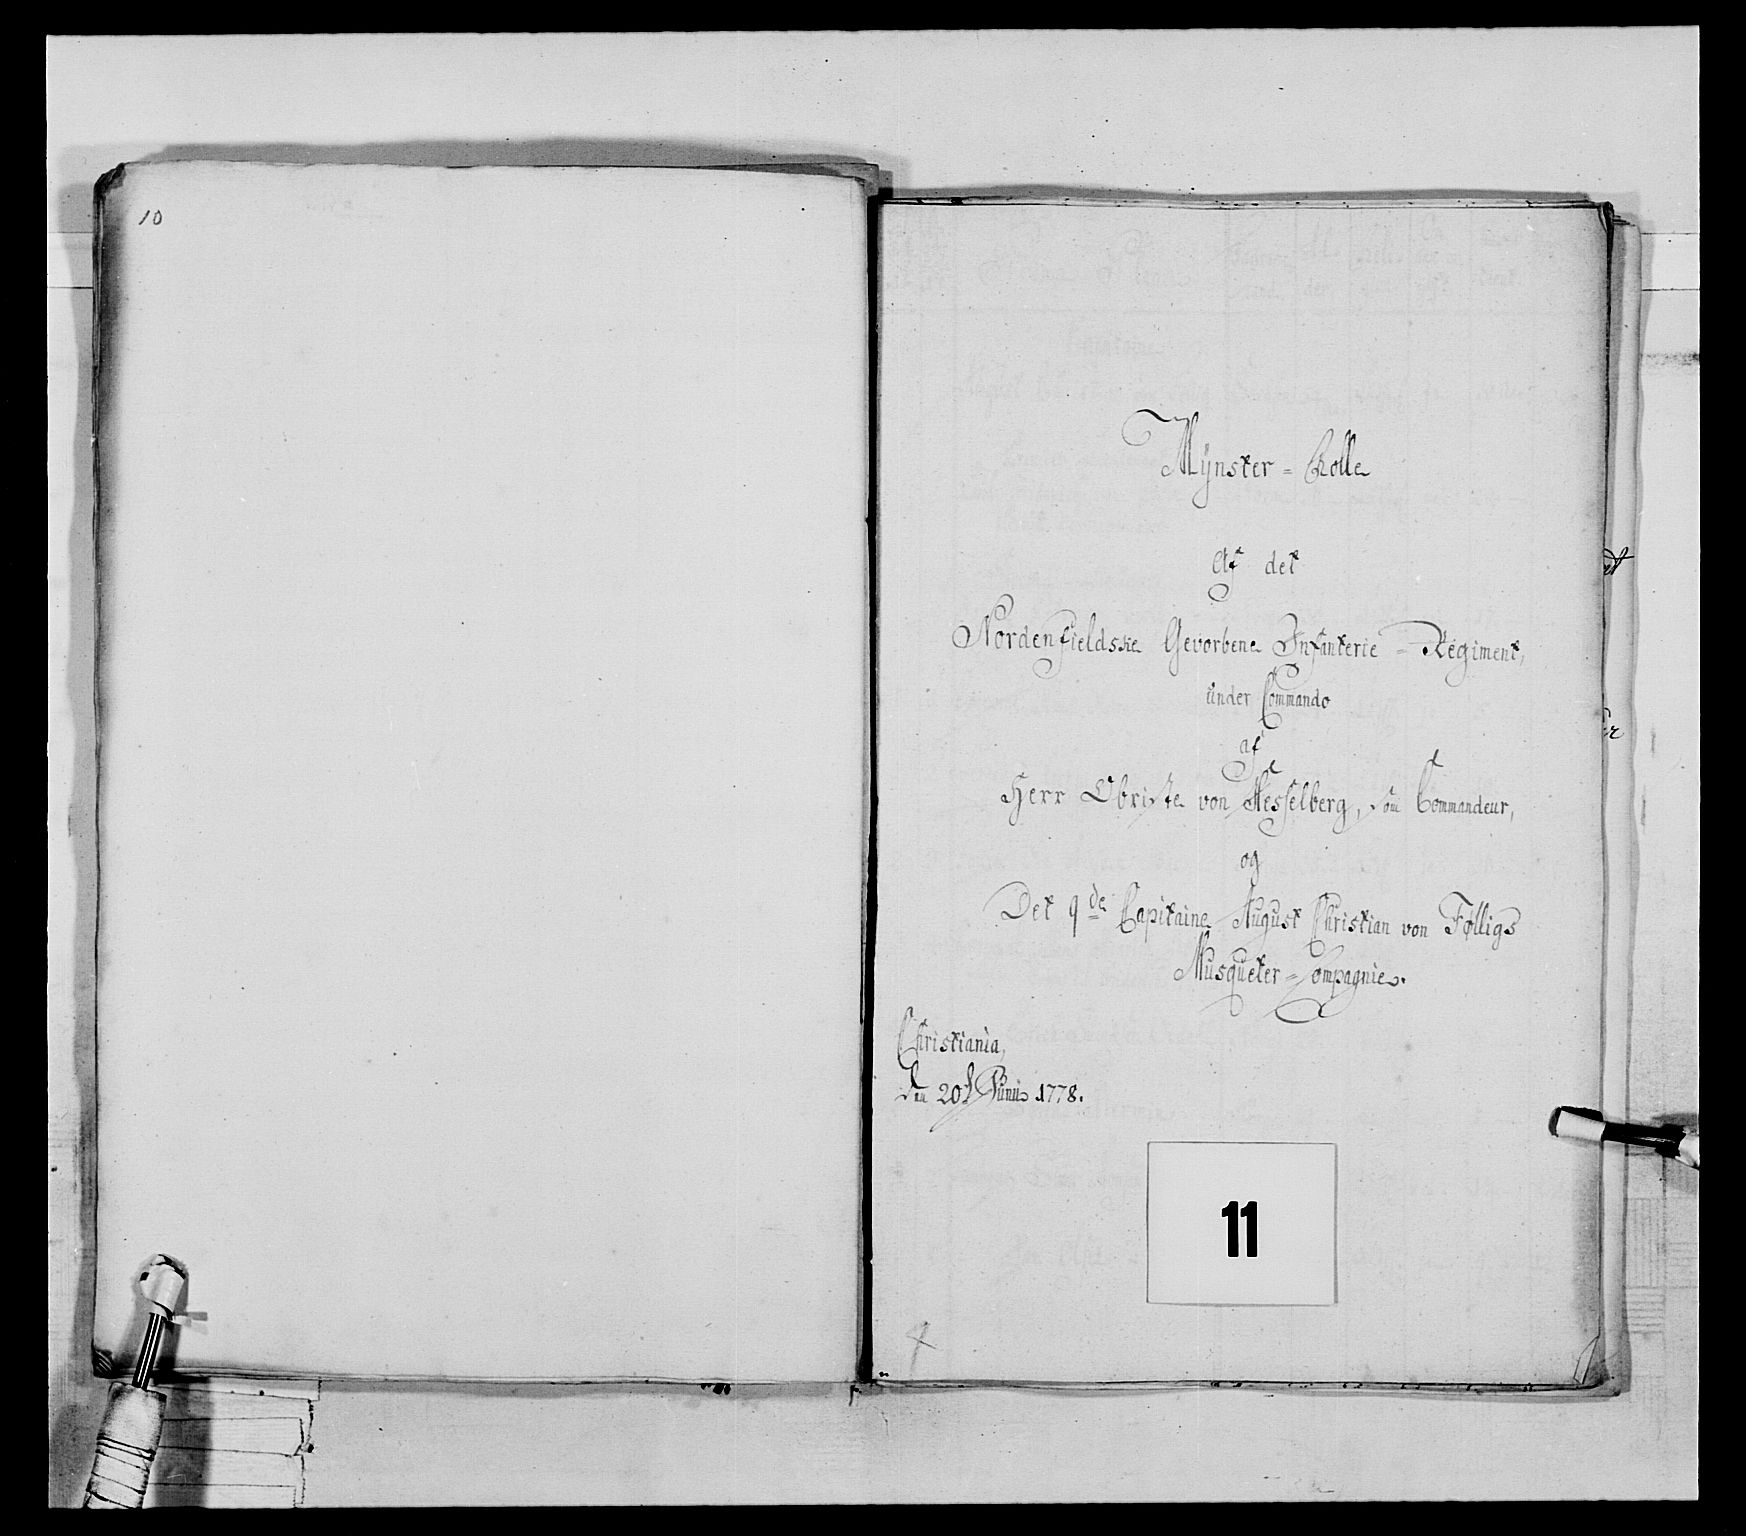 10
Mÿnster = Rolle
Af det
Nordenfieldske Gevorbene Infanterie = Regiment,
under Commando
af
Herr Obriste von Hesselberg, som Commandeur,
og
Det 9de Capitaine August Christian von Følligs
Musqueter = Compagnie.
Christiania,
den 20d Junii 1778.
11